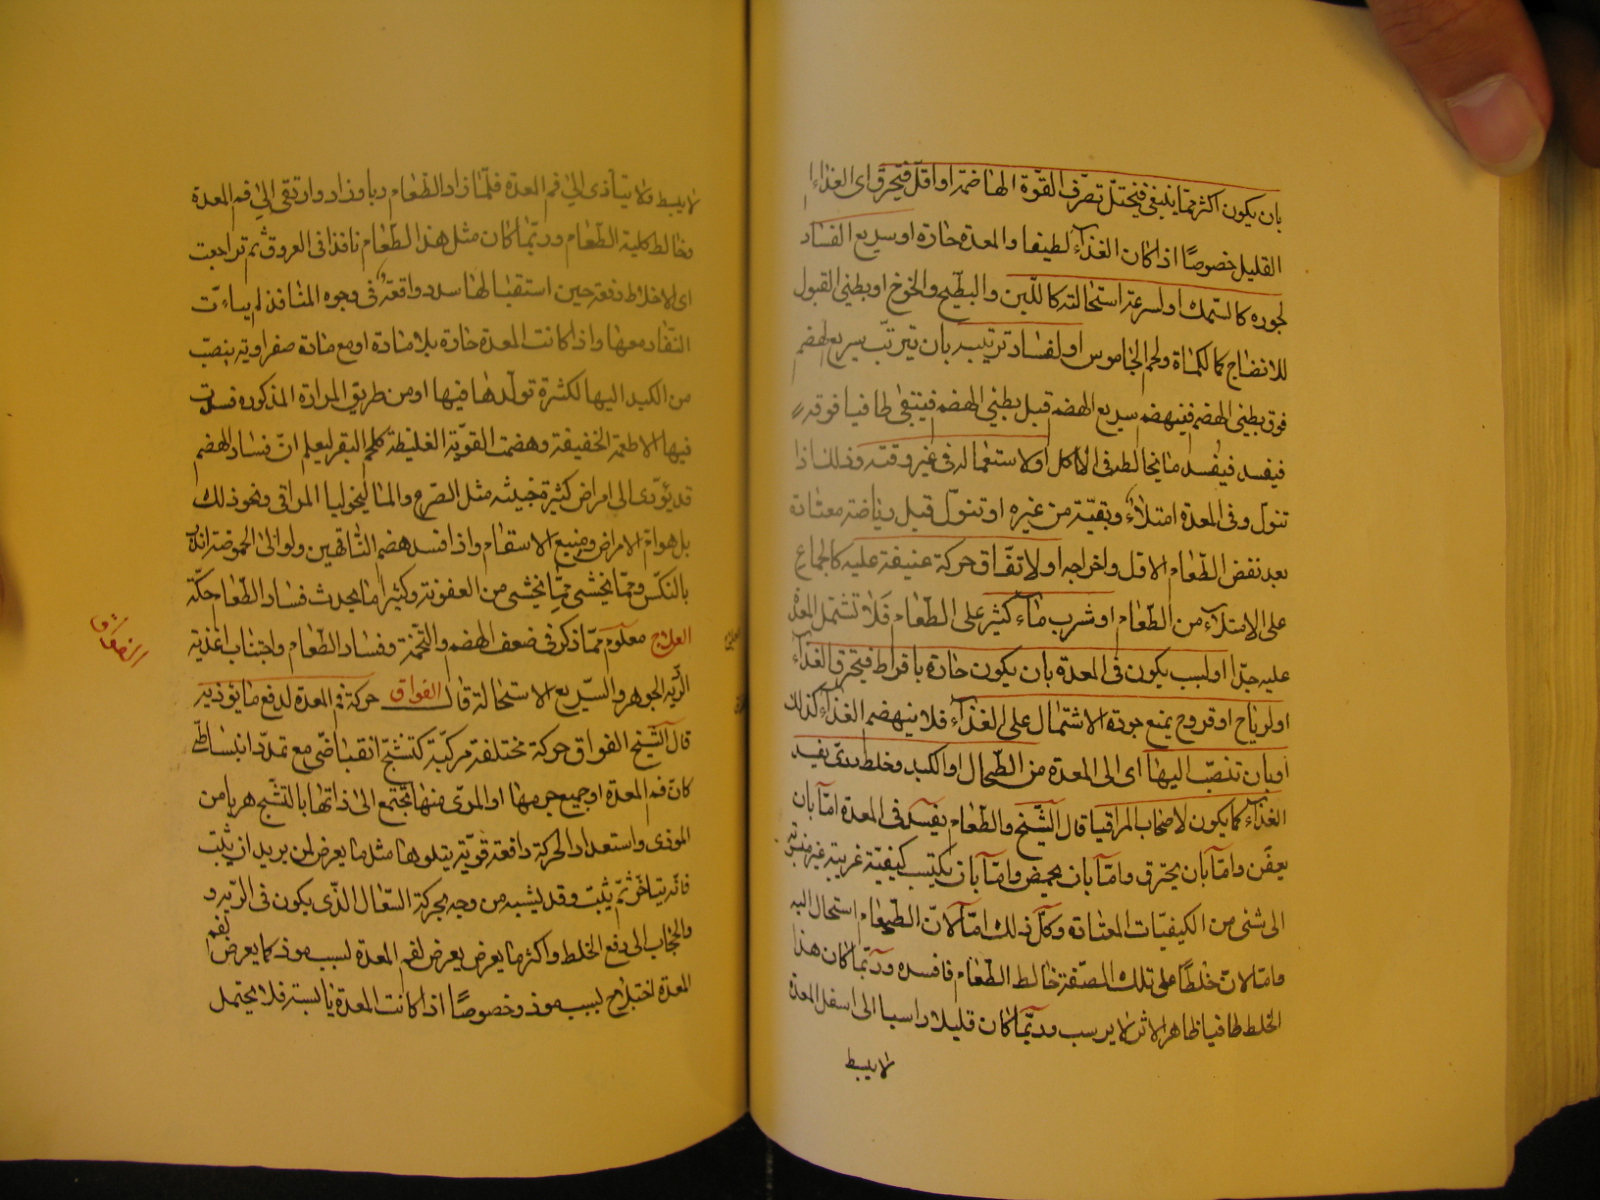 بان يكون اكثر مما ينبغى فيختل تصرف القوة الهاضمة او اقل فيحترق اى الغذاء
القليل خصوصًا اذا كان الغذاء لطيفا والمعدة حارة او سريع الفساد
لجوره كالسمك او لسرعة استحالته كاللبن والبطيخ والخوخ او بطئ القبول
للانضاج كالكماة ولحم الجاموس او لفساد ترتيبه بان يترتب سريع الهضم
فوق بطئ الهضم فينهضم سريع الهضم قبل بطئ الهضم فيبقى طافيا فوقه
فيفسد فيفسد ما يخالطه فى الاكل او لاستعماله فى غير وقته وذلك اذا
تنول وفى المعدة امتلاء وبقية من غيره او تنول قبل رياضة معتادة
بعد نفض الطعام الاول واخراجه او لاتفاق حركة عنيفة عليه كالجماع
على الامتلاء من الطعام او شرب ماء كثير على الطعام فلا تشتمل المعدة
عليه جدا او لسبب يكون فى المعدة بان يكون حارة بافراط فيحترق الغذاء
او لرياح او قروح يمنع جودة الاشتمال على الغذاء فلا ينهضم الغذاء كذلك
او بان تنصب اليها اى الى المعدة من الطحال او الكبد وخلط ردى يفسد
الغذاء كما يكون لاصحاب المراقيا قال الشيخ والطعام يفسد فى المعدة اما بان
يعفن واما بان يحترق واما بان يحمض واما بان يكتسب كيفية غريبة غير منسوبة
الى شئ من الكيفيات المعتادة وكل ذلك اما لان الطعام استحال اليه
واما لان خلطًا على تلك الصفة خالط الطعام فافسده وربما كان هذا
الخلط طافيا ظاهر الاثر لا يرسب وربما كان قليلا راسبا الى اسفل المعدة
لا ينبسط
لا ينبسط ولا يتاذى الى فم المعدة فلما زاد الطعام ربا وزاد وارتقى الى فم المعدة
وخالط كلية الطعام وربما كان مثل هذا الطعام نافذا فى العروق ثم تراجعت
اى الاخلاط دفعة حين استقبالها سدد واقعة فى وجوه المنافذ لم يتات
النفاد معها واذا كانت المعدة حارة بلا مادة او مع مادة صفراوية ينصب
من الكبد اليها لكثرة تولدها فيها او من طريق المرارة المذكورة فسدت
فيها الاطعمة الخفيفة وهضمت القوية الغليظة كلحم البقر ليعلم ان فساد الهضم
قد يؤدى الى امراض كثيرة خبيثة مثل الصرع والماليخوليا المراقى ونحو ذلك
بل هو ام الامراض ومنبع الاسقام واذا فسد هضم الناقهين ولو الى الحموضة انذر
بالنكس ومما يخشى مما يخشى من العفونة وكثيرا ما يحدث فساد الطعام حكة
العلاج معلوم مما ذكر فى ضعف الهضم والتخمة وفساد الطعام واجتناب اغذية
الردية الجوهر والسريع الاستحالة قال الفواق حركة فى المعدة لدفع ما يؤذيه
قال الشيخ الفواق حركة مختلفة مركبة كتشنج انقباضى مع تمدد انبساطى
كان فم المعدة او جميع جرمها او المرى منها يجتمع الى ذاتها بالتشنج هربا من
الموذى واستعداد الحركة دافعة قوية يتلوها مثل ما يعرض لمن يريد ان يثب
فانه يتاخر ثم يثب وقد يشبه من وجه بحركة السعال الذى يكون فى الرية و
والحجاب الى دفع الخلط واكثر ما يعرض يعرض لفم المعدة لسبب موذ كما يعرض لفم
المعدة اختلاج لسبب موذ وخصوصًا اذا كانت المعدة يابسة فلا يحتمل